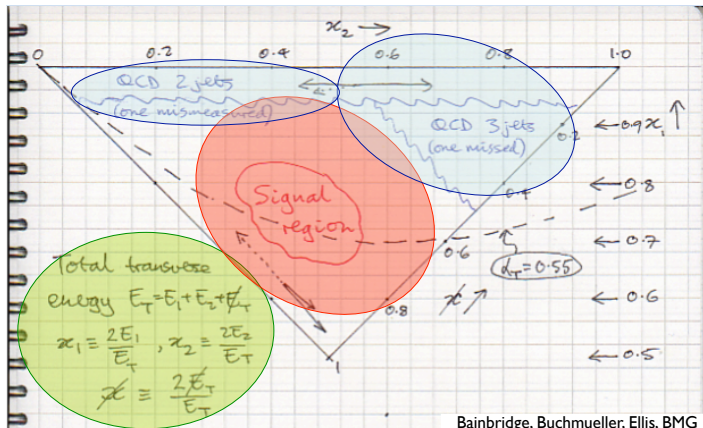 x₂ →
0 0.2 0.4 0.6 0.8 1.0
QCD 2 jets
(one mismeasured)
QCD 3 jets
(one missed)
0.2
← 0.9 x₁ ↑
0.4
← 0.8
Signal
region
← 0.7
0.6
α_T = 0.55
Total transvese
energy E_T = E₁ + E₂ + E̸_T
0.8
x̸ ↗
← 0.6
x₁ ≡ 2E₁/E_T , x₂ ≡ 2E₂/E_T
← 0.5
1
x̸ ≡ 2E̸_T/E_T
Bainbridge, Buchmueller, Ellis, BMG